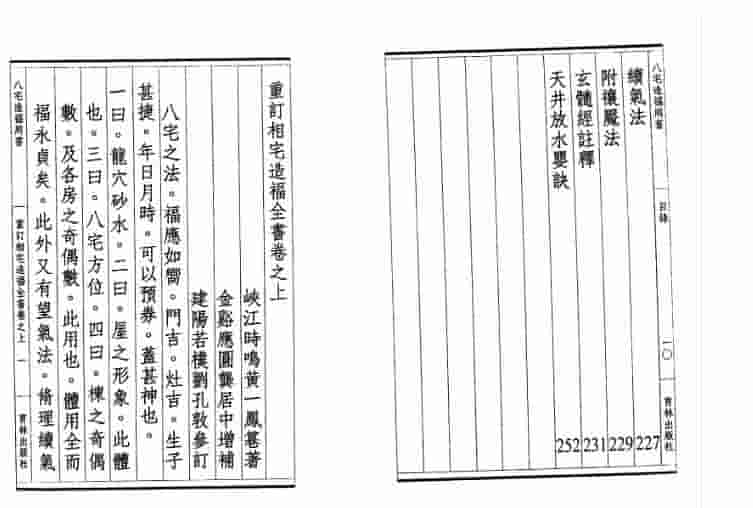 八宅造福周書
目錄
一〇
育林出版社
續氣法 227
附禳魘法 229
玄髓經註釋 231
天井放水嬰訣 252
重訂相宅造福全書卷之上
峽江時鳴黃一鳳篹著
金谿應圜龔居中增補
建陽若樸劉孔敦參訂
八宅之法。福應如嚮。門吉。灶吉。生子
甚捷。年日月時。可以預券。蓋甚神也。
一曰。龍穴砂水。二曰。屋之形象。此體
也。三曰。八宅方位。四曰。棟之奇偶
數。及各房之奇偶數。此用也。體用全而
福永貞矣。此外又有望氣法。脩理續氣
八宅造福周書
重訂相宅造福全書卷之上
一
育林出版社